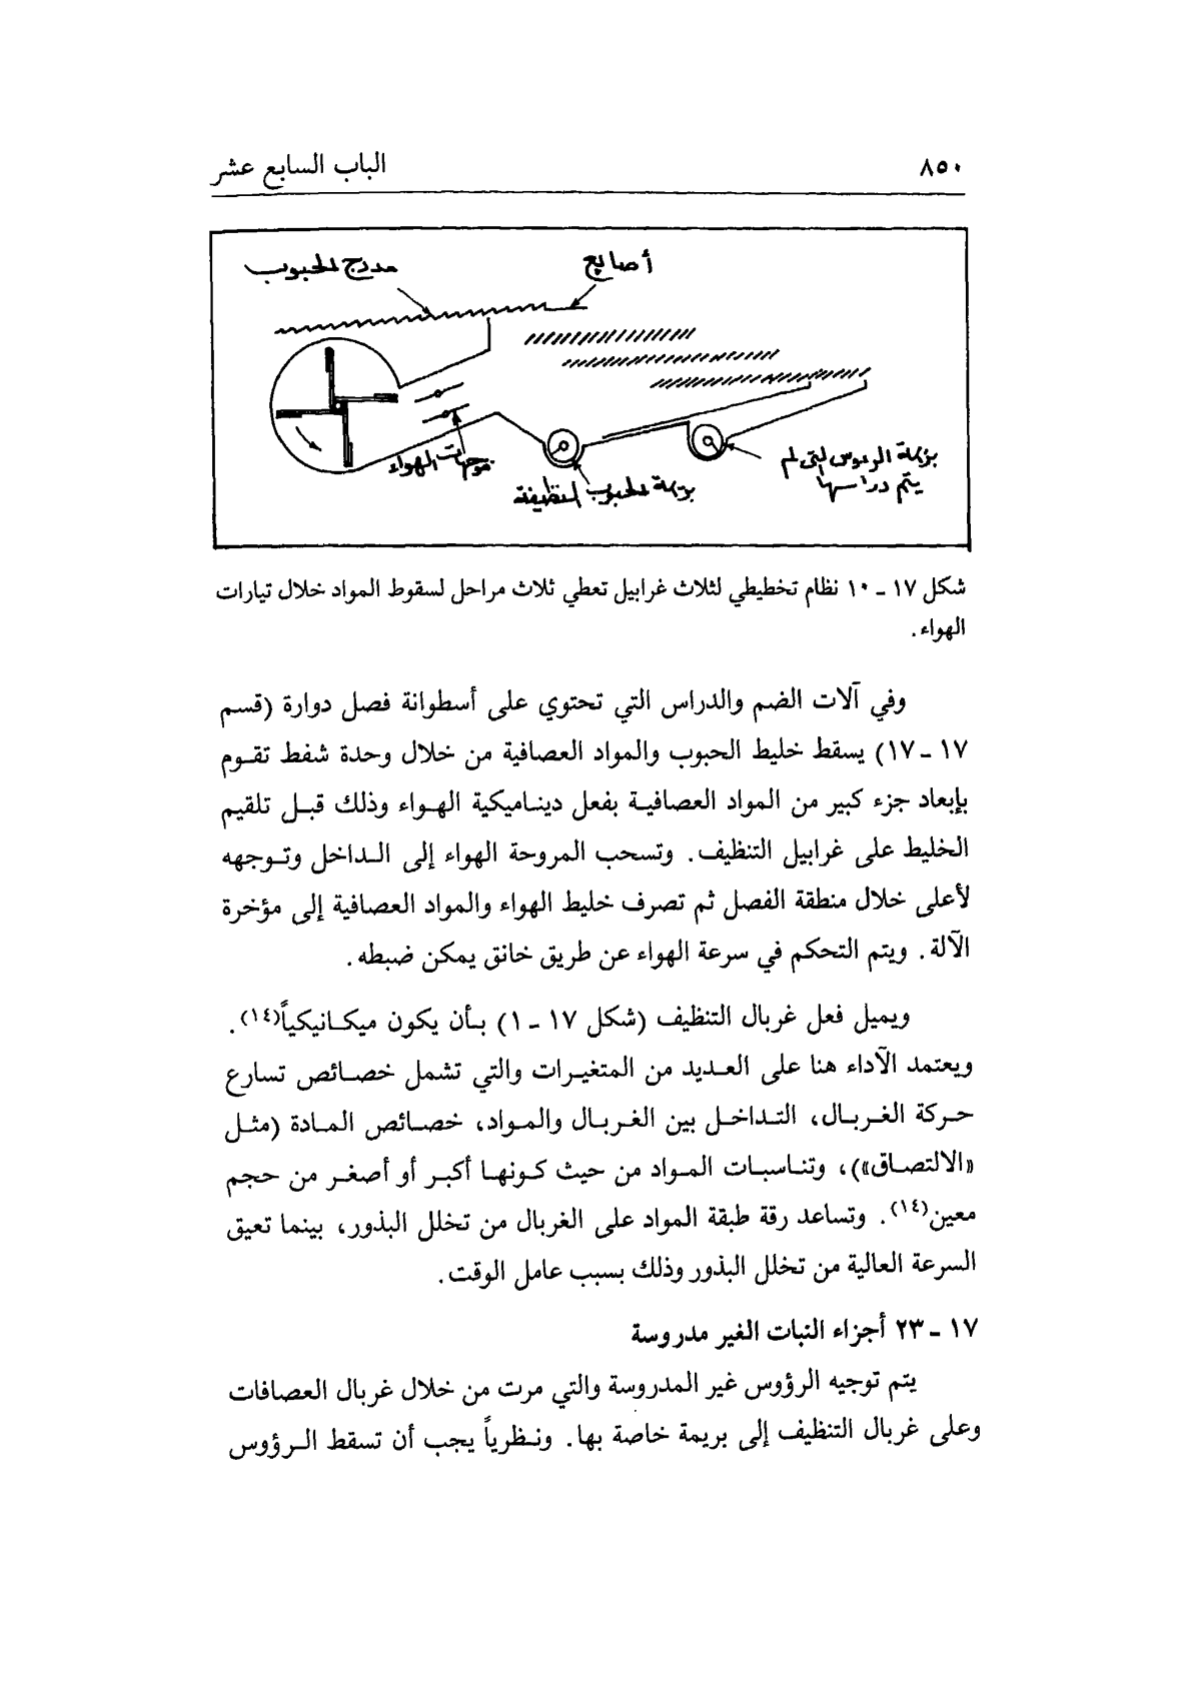 ٨٥٠
الباب السابع عشر
أصابع
مدرج الحبوب
موجهات الهواء
بريمة الحبوب النظيفة
بريمة الرءوس التى لم
يتم دراسها
شكل ١٧ ـ ١٠ نظام تخطيطي لثلاث غرابيل تعطي ثلاث مراحل لسقوط المواد خلال تيارات
الهواء.
وفي آلات الضم والدراس التي تحتوي على أسطوانة فصل دوارة (قسم
١٧ ـ ١٧) يسقط خليط الحبوب والمواد العصافية من خلال وحدة شفط تقوم
بإبعاد جزء كبير من المواد العصافية بفعل ديناميكية الهواء وذلك قبل تلقيم
الخليط على غرابيل التنظيف. وتسحب المروحة الهواء إلى الداخل وتوجهه
لأعلى خلال منطقة الفصل ثم تصرف خليط الهواء والمواد العصافية إلى مؤخرة
الآلة. ويتم التحكم في سرعة الهواء عن طريق خانق يمكن ضبطه.
ويميل فعل غربال التنظيف (شكل ١٧ ـ ١) بأن يكون ميكانيكياً(١٤).
ويعتمد الآداء هنا على العديد من المتغيرات والتي تشمل خصائص تسارع
حركة الغربال، التداخل بين الغربال والمواد، خصائص المادة (مثل
«الالتصاق»)، وتناسبات المواد من حيث كونها أكبر أو أصغر من حجم
معين(١٤). وتساعد رقة طبقة المواد على الغربال من تخلل البذور، بينما تعيق
السرعة العالية من تخلل البذور وذلك بسبب عامل الوقت.
١٧ ـ ٢٣ أجزاء النبات الغير مدروسة
يتم توجيه الرؤوس غير المدروسة والتي مرت من خلال غربال العصافات
وعلى غربال التنظيف إلى بريمة خاصة بها. ونظرياً يجب أن تسقط الرؤوس